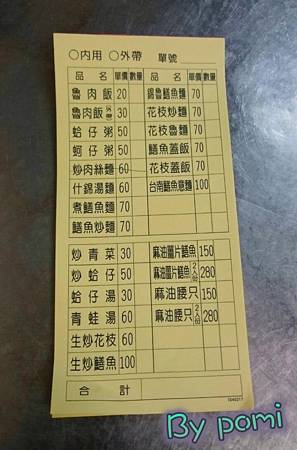 ○內用 ○外帶 單號
品名 單價 數量 品名 單價 數量
魯肉飯 20 錦魯鱔魚麵 70
魯肉飯 外帶 30 花枝炒麵 70
蛤仔粥 50 花枝魯麵 70
蚵仔粥 50 鱔魚蓋飯 70
炒肉絲麵 60 花枝蓋飯 70
什錦湯麵 60 台南鱔魚意麵 100
煮鱔魚麵 60
鱔魚炒麵 60
炒青菜 30 麻油薑片鱔魚 150
炒蛤仔 50 麻油薑片鱔魚 2人份 280
蛤仔湯 30 麻油腰只 150
青蛙湯 60 麻油腰只 2人份 280
生炒花枝 60
生炒鱔魚 100
合計
By pomi